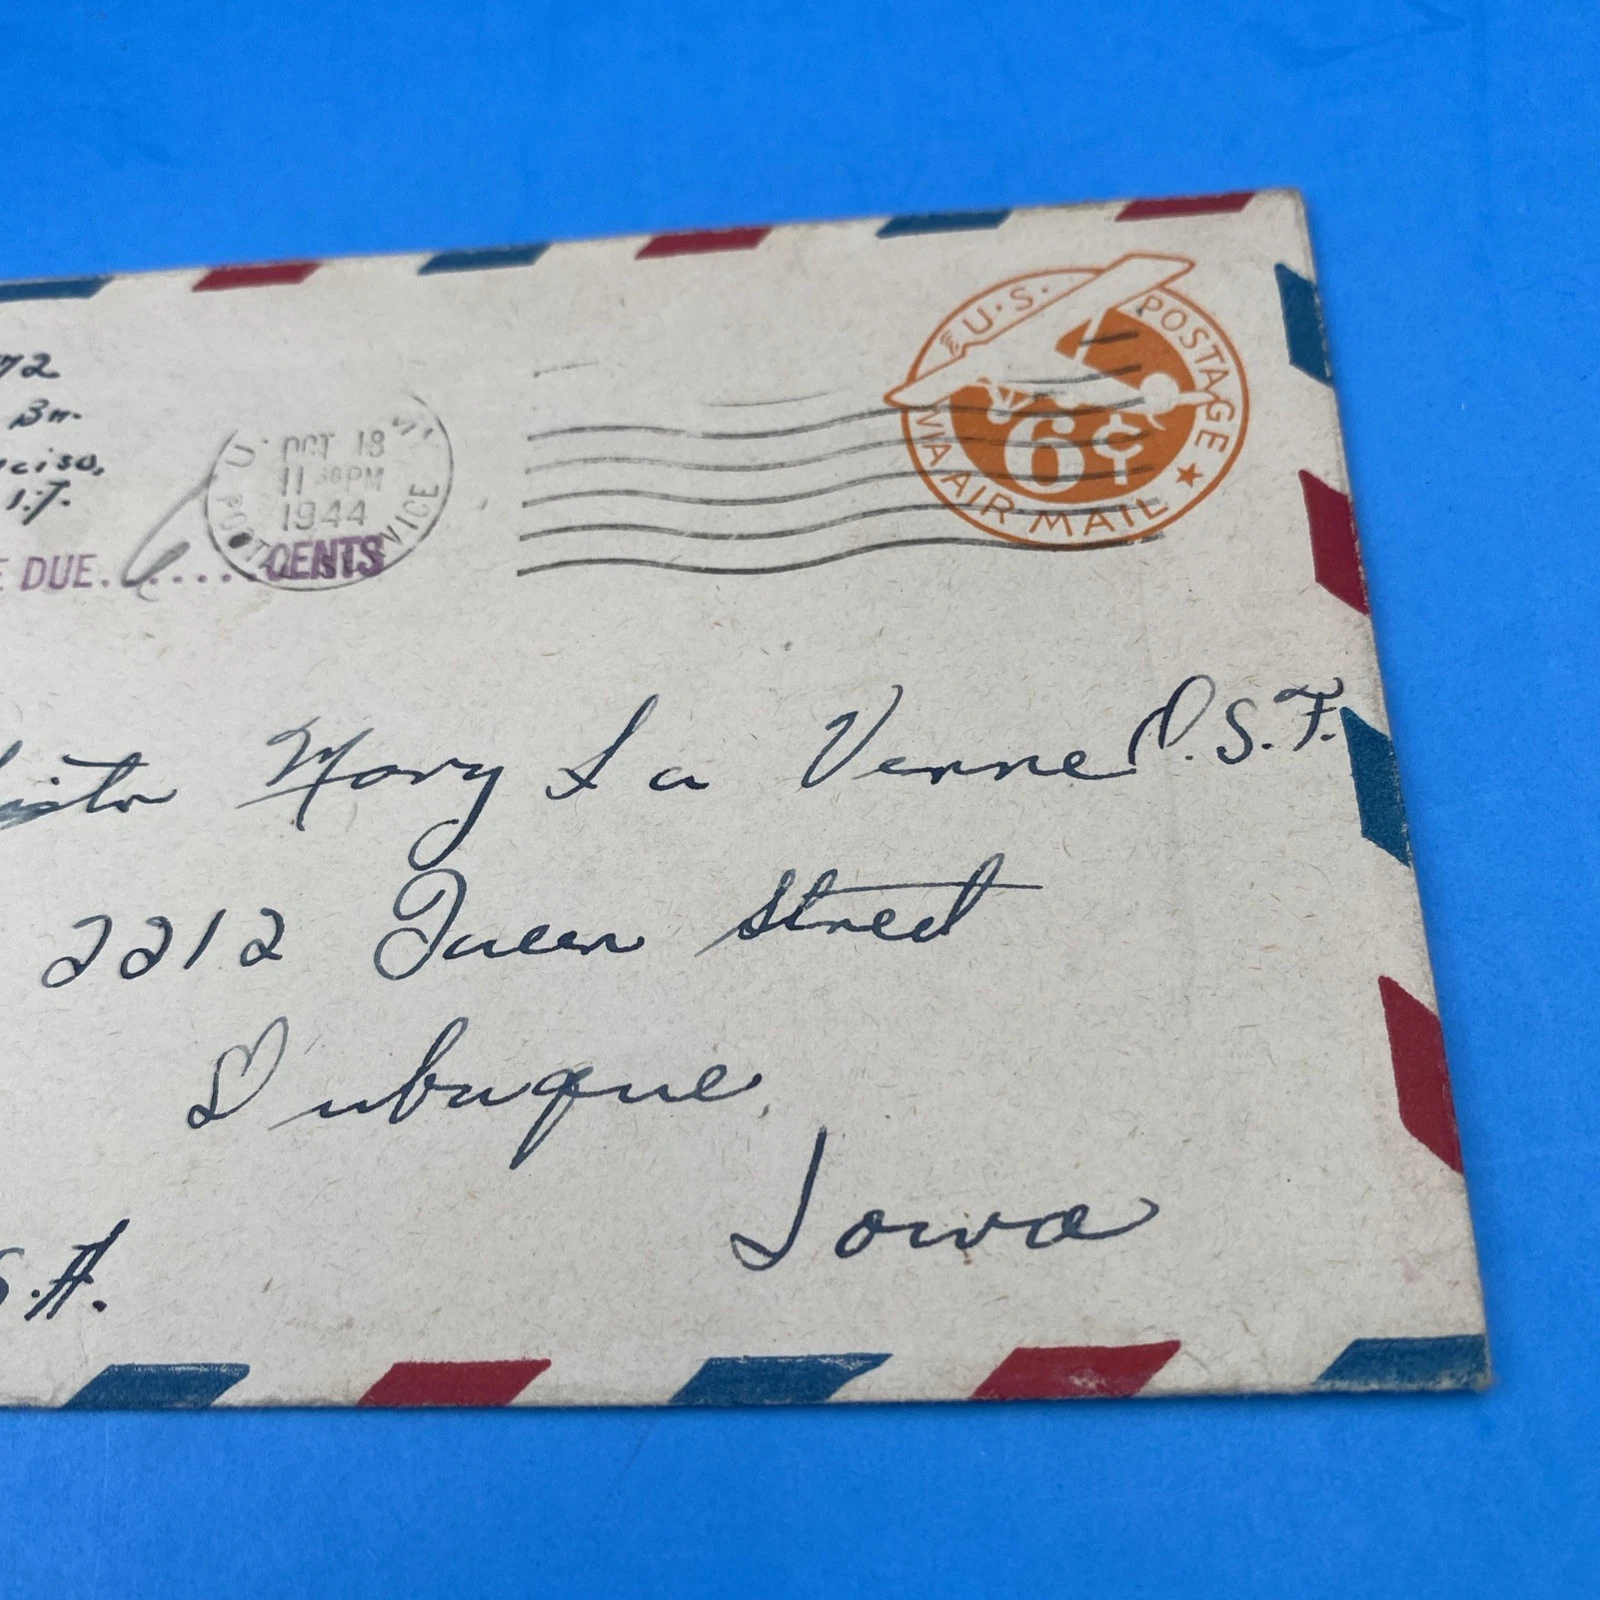 72
Bn.
ciso,
I.T.
U. S.
OCT 18
11 30PM
1944
POSTAL SERVICE
E DUE. 6 ..... CENTS
U.S. POSTAGE
6¢
VIA AIR MAIL
Mary La Verne O.S.F.
2212 Queen Street
Dubuque,
Iowa
S.A.